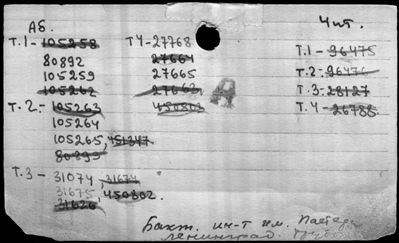 Аб.
Т.1- 105258
80892
105259
105262
Т.2- 105263
105264
105265, 451347
80893
Т.3- 31074, 31674
31675, 450802.
31626
Т4-27768
27664
27665
27663
450803
А
Чит.
Т.1- 96475
Т.2- 96476
Т.3- 28127
Т.4- 26788
Бакт. ин-т им. Пастера
Ленинград. Труды